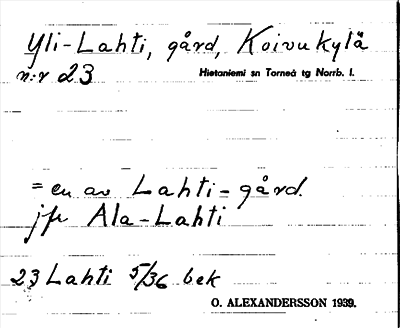 Yli-Lahti, gård, Koivukylä
n:r 23 Hietaniemi sn Torneå tg Norrb. l.
= en av Lahti-gård.
jfr Ala-Lahti
23 Lahti 5/36 bek
O. ALEXANDERSSON 1939.